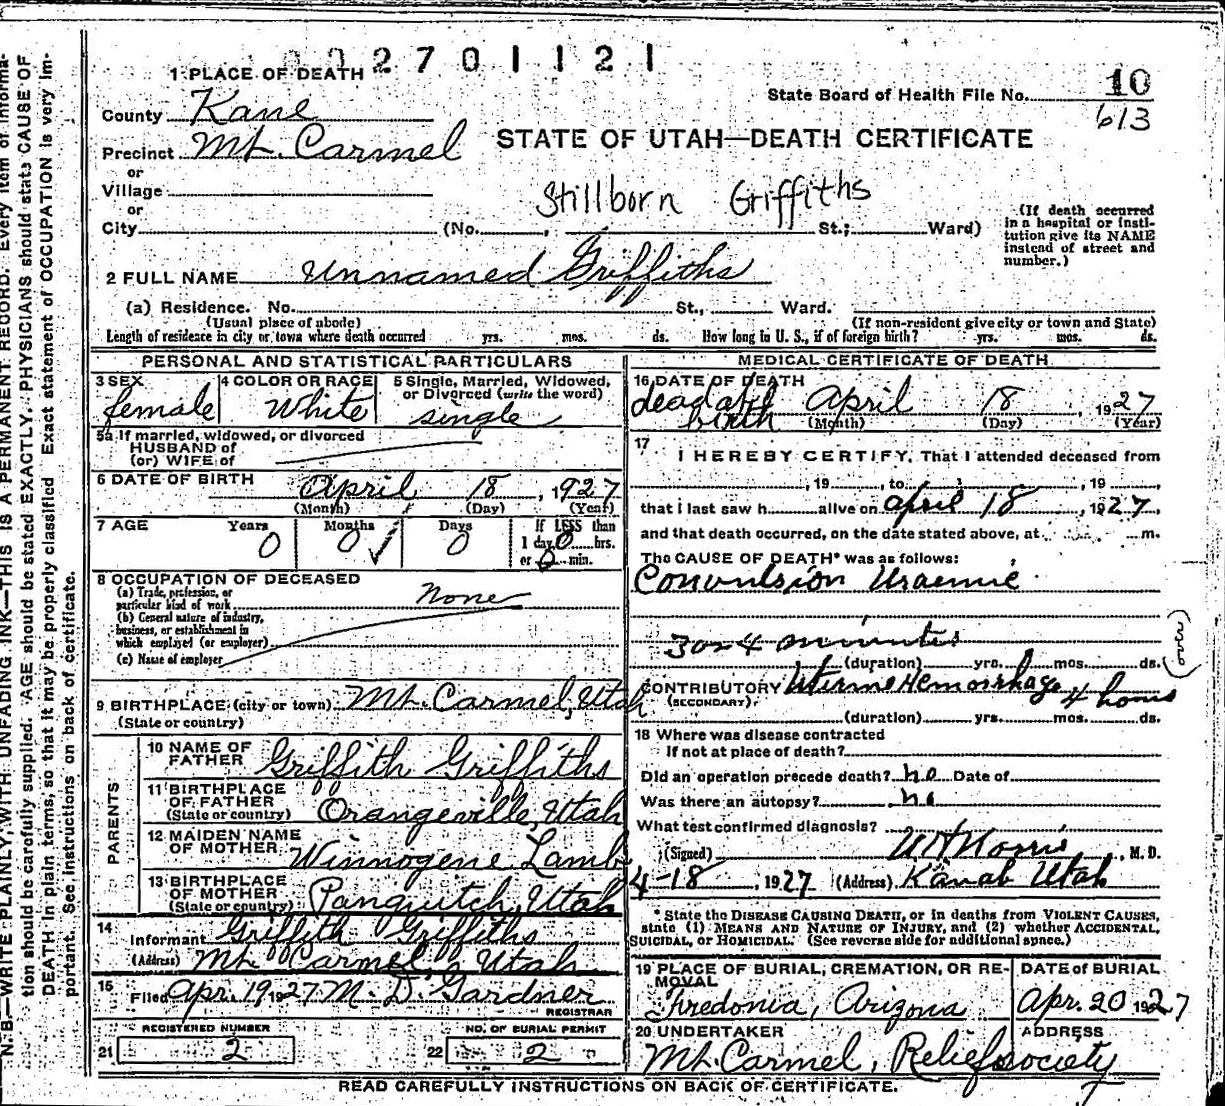 2 7 0 1 1 2 1
1 PLACE OF DEATH
County Kane
Precinct Mt. Carmel
or
Village
or
City (No. , St.; Ward)
State Board of Health File No. 10
613
STATE OF UTAH—DEATH CERTIFICATE
Stillborn Griffiths
(If death occurred in a hospital or institution give its NAME instead of street and number.)
2 FULL NAME Unnamed Griffiths
(a) Residence. No. St., Ward.
(Usual place of abode) (If non-resident give city or town and State)
Length of residence in city or town where death occurred yrs. mos. ds. How long in U. S., if of foreign birth? yrs. mos. ds.
PERSONAL AND STATISTICAL PARTICULARS
3 SEX 4 COLOR OR RACE 5 Single, Married, Widowed, or Divorced (write the word)
female White single
5a If married, widowed, or divorced
HUSBAND of
(or) WIFE of
6 DATE OF BIRTH April 18, 1927
(Month) (Day) (Year)
7 AGE Years Months Days If LESS than
0 0 0 1 day, 0 hrs.
or 0 min.
8 OCCUPATION OF DECEASED
(a) Trade, profession, or
particular kind of work None
(b) General nature of industry,
business, or establishment in
which employed (or employer)
(c) Name of employer
9 BIRTHPLACE (city or town) Mt. Carmel, Utah
(State or country)
PARENTS
10 NAME OF
FATHER Griffith Griffiths
11 BIRTHPLACE
OF FATHER
(State or country) Orangeville, Utah
12 MAIDEN NAME
OF MOTHER Winnogene Lamb
13 BIRTHPLACE
OF MOTHER
(State or country) Panguitch, Utah
14
Informant Griffith Griffiths
(Address) Mt. Carmel, Utah
15
Filed Apr. 19 1927 M. D. Gardner
REGISTRAR
REGISTERED NUMBER NO. OF BURIAL PERMIT
21 2 22 2
MEDICAL CERTIFICATE OF DEATH
16 DATE OF DEATH
dead at birth April 18, 1927
(Month) (Day) (Year)
17
I HEREBY CERTIFY, That I attended deceased from
, 19 , to , 19
that I last saw h alive on April 18, 1927,
and that death occurred, on the date stated above, at m.
The CAUSE OF DEATH* was as follows:
Convulsion Uraemic
3 or 4 minutes
(duration) yrs. mos. ds.
(over)
CONTRIBUTORY Uterine Hemorrhage 4 hours
(SECONDARY)
(duration) yrs. mos. ds.
18 Where was disease contracted
If not at place of death?
Did an operation precede death? no Date of
Was there an autopsy? no
What test confirmed diagnosis?
(Signed) , M. D.
4-18, 1927 (Address) Kanab Utah
* State the DISEASE CAUSING DEATH, or in deaths from VIOLENT CAUSES,
state (1) MEANS AND NATURE OF INJURY, and (2) whether ACCIDENTAL,
SUICIDAL, or HOMICIDAL. (See reverse side for additional space.)
19 PLACE OF BURIAL, CREMATION, OR REMOVAL DATE of BURIAL
Fredonia, Arizona Apr. 20 1927
20 UNDERTAKER ADDRESS
Mt. Carmel, Relief society
READ CAREFULLY INSTRUCTIONS ON BACK OF CERTIFICATE.
N. B.—WRITE PLAINLY, WITH UNFADING INK—THIS IS A PERMANENT RECORD. Every item of information should be carefully supplied. AGE should be stated EXACTLY. PHYSICIANS should state CAUSE OF DEATH in plain terms, so that it may be properly classified. Exact statement of OCCUPATION is very important. See instructions on back of certificate.